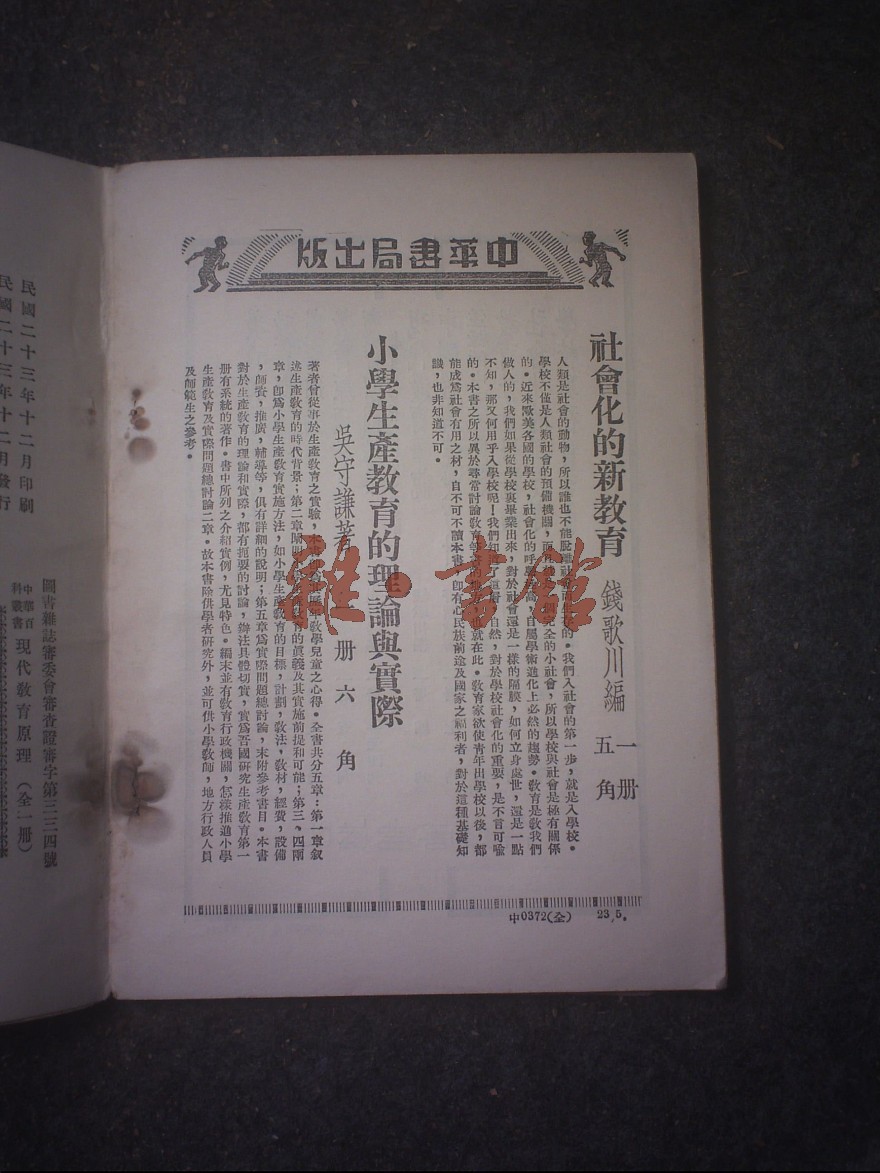 中華書局出版
社會化的新教育
錢歌川編
一册
五角
人類是社會的動物，所以誰也不能脫離社會而生存的。我們入社會的第一步，就是入學校。
學校不僅是人類社會的預備機關，而 完全的小社會，所以學校與社會是極有關係
的。近來歐美各國的學校，社會化的呼聲 高，自屬學術進化上必然的趨勢。教育是教我們
做人的，我們如果從學校裏畢業出來，對於社會還是一樣的隔膜，如何立身處世，還是一點
不知，那又何用乎入學校呢！我們知道了這 自然，對於學校社會化的重要，是不言可喩
的。本書之所以異於尋常討論教育 也就在此。教育家欲使青年出學校以後，都
能成爲社會有用之材，自不可不讀本書，卽有心民族前途及國家之福利者，對於這種基礎知
識，也非知道不可。
小學生產教育的理論與實際
吳守謙著
一册六角
著者曾從事於生產教育之實驗，本書卽 年教學兒童之心得。全書共分五章：第一章叙
述生產教育的時代背景；第二章闡明小學生產教育的眞義及其實施前提和可能；第三、四兩
章，卽爲小學生產教育實施方法，如小學生產教育的目標，計劃，教法，教材，經費，設備
，師資，推廣，輔導等，俱有詳細的說明；第五章爲實際問題總討論，末附參考書目。本書
對於生產教育的理論和實際，都有扼要的討論，辦法具體切實，實爲吾國研究生產教育第一
册有系統的著作。書中所列之介紹實例，尤見特色。編末並有教育行政機關，怎樣推進小學
生產教育及實際問題總討論二章。故本書除供學者研究外，並可供小學教師，地方行政人員
及師範生之參考。
中0372(全) 23,5。
雅·書館
圖書雜誌審委會審查證審字第三三四號
中華百科叢書 現代教育原理（全一册）
民國二十三年十二月印刷
民國二十三年十二月發行